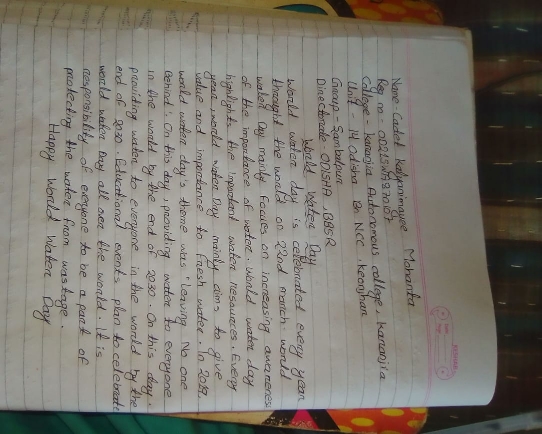 Name - Cadet Kalyanimayee Mohanta
Reg no -
College - Karanjia Autonomous college, Karanjia
Unit - 14 Odisha Bn NCC, Keonjhar
Group - Sambalpur
Directorate - ODISHA, BBSR
World Water Day
World water day is celebrated every year
throught the world on 22nd march. World
water Day mainly focus on increasing awareness
of the importance of water. World water day
highlights the important water resources. Every
year world water Day mainly aims to give
value and importance to fresh water. In 2019
world water day's theme was 'leaving No one
Behind'. On this day, providing water to everyone
in the world by the end of 2030. On this day,
providing water to everyone in the world by the
end of 2030. Educational events plan to celebrate
world water Day all over the world. It is
responsibility of everyone to be a part of
protecting the water from wastage.
Happy World Water Day